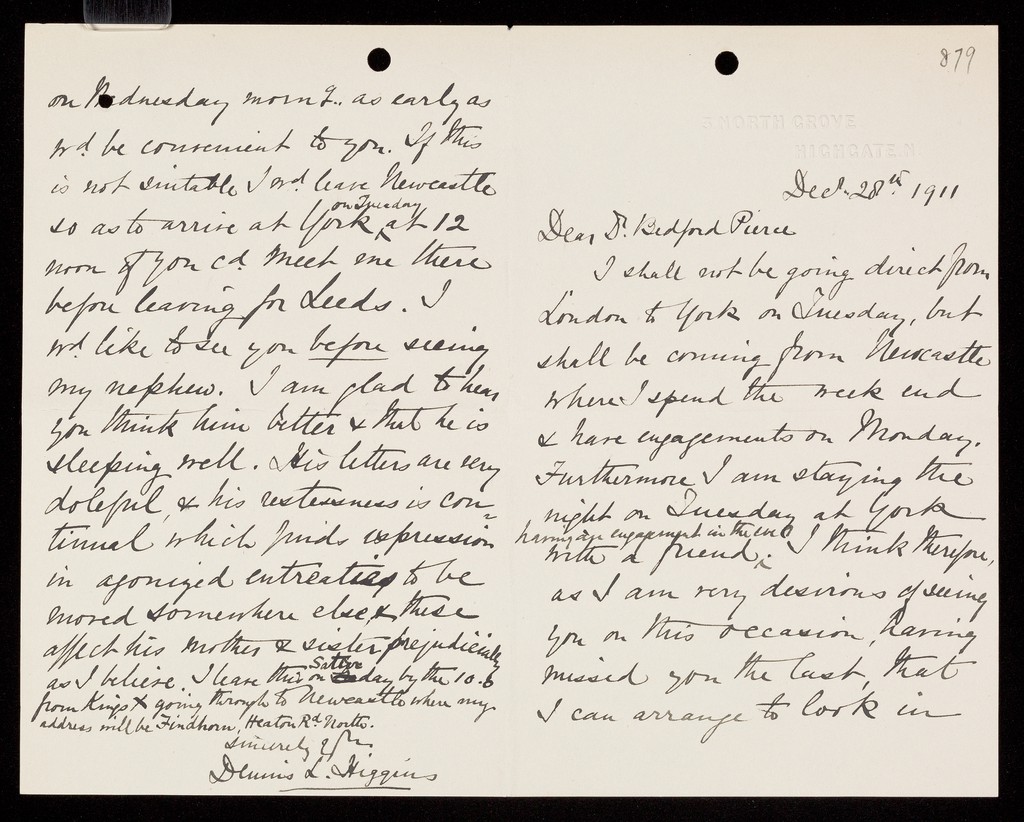 879
5 NORTH GROVE
HIGHGATE. N
Decr. 28th. 1911
Dear Dr. Bedford Pierce
I shall not be going direct from
London to York on Tuesday, but
shall be coming from Newcastle
where I spend the week end
& have engagements on Monday.
Furthermore I am staying the
night on Tuesday at York
having an engagement in the eveg
with a friend. I think therefore,
as I am very desirous of seeing
you on this occasion, having
missed you the last, that
I can arrange to look in
on Wednesday morng. as early as
wd. be convenient to you. If this
is not suitable I wd. leave Newcastle
on Tuesday
so as to arrive at York, at 12
noon if you cd. meet me there
before leaving for Leeds. I
wd. like to see you before seeing
my nephew. I am glad to hear
you think him better & that he is
sleeping well. His letters are very
doleful, & his restlessness is con=
tinual which finds expression
in agonized entreaties to be
moved somewhere else, & these
affect his mother & sister prejudicially
as I believe. I leave this on Satur day by the 10.
from Kings X going through to Newcastle where my
address will be Findhorn, Heaton Rd. North.
Sincerely yrs.
Dennis L. Higgins